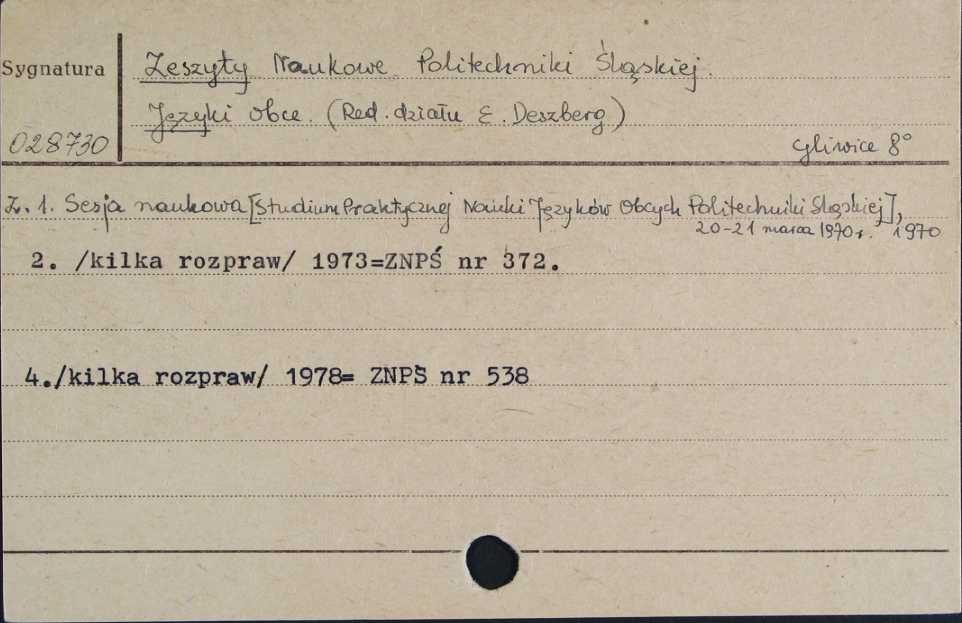 Sygnatura
Zeszyty Naukowe Politechniki Śląskiej.
Języki Obce. (Red. działu E. Deszberg)
028730
Gliwice 8°
Z. 1. Sesja naukowa [Studium Praktycznej Nauki Języków Obcych Politechniki Śląskiej],
20-21 marca 1970 r. 1970
2. /kilka rozpraw/ 1973=ZNPŚ nr 372.
4./kilka rozpraw/ 1978= ZNPŚ nr 538